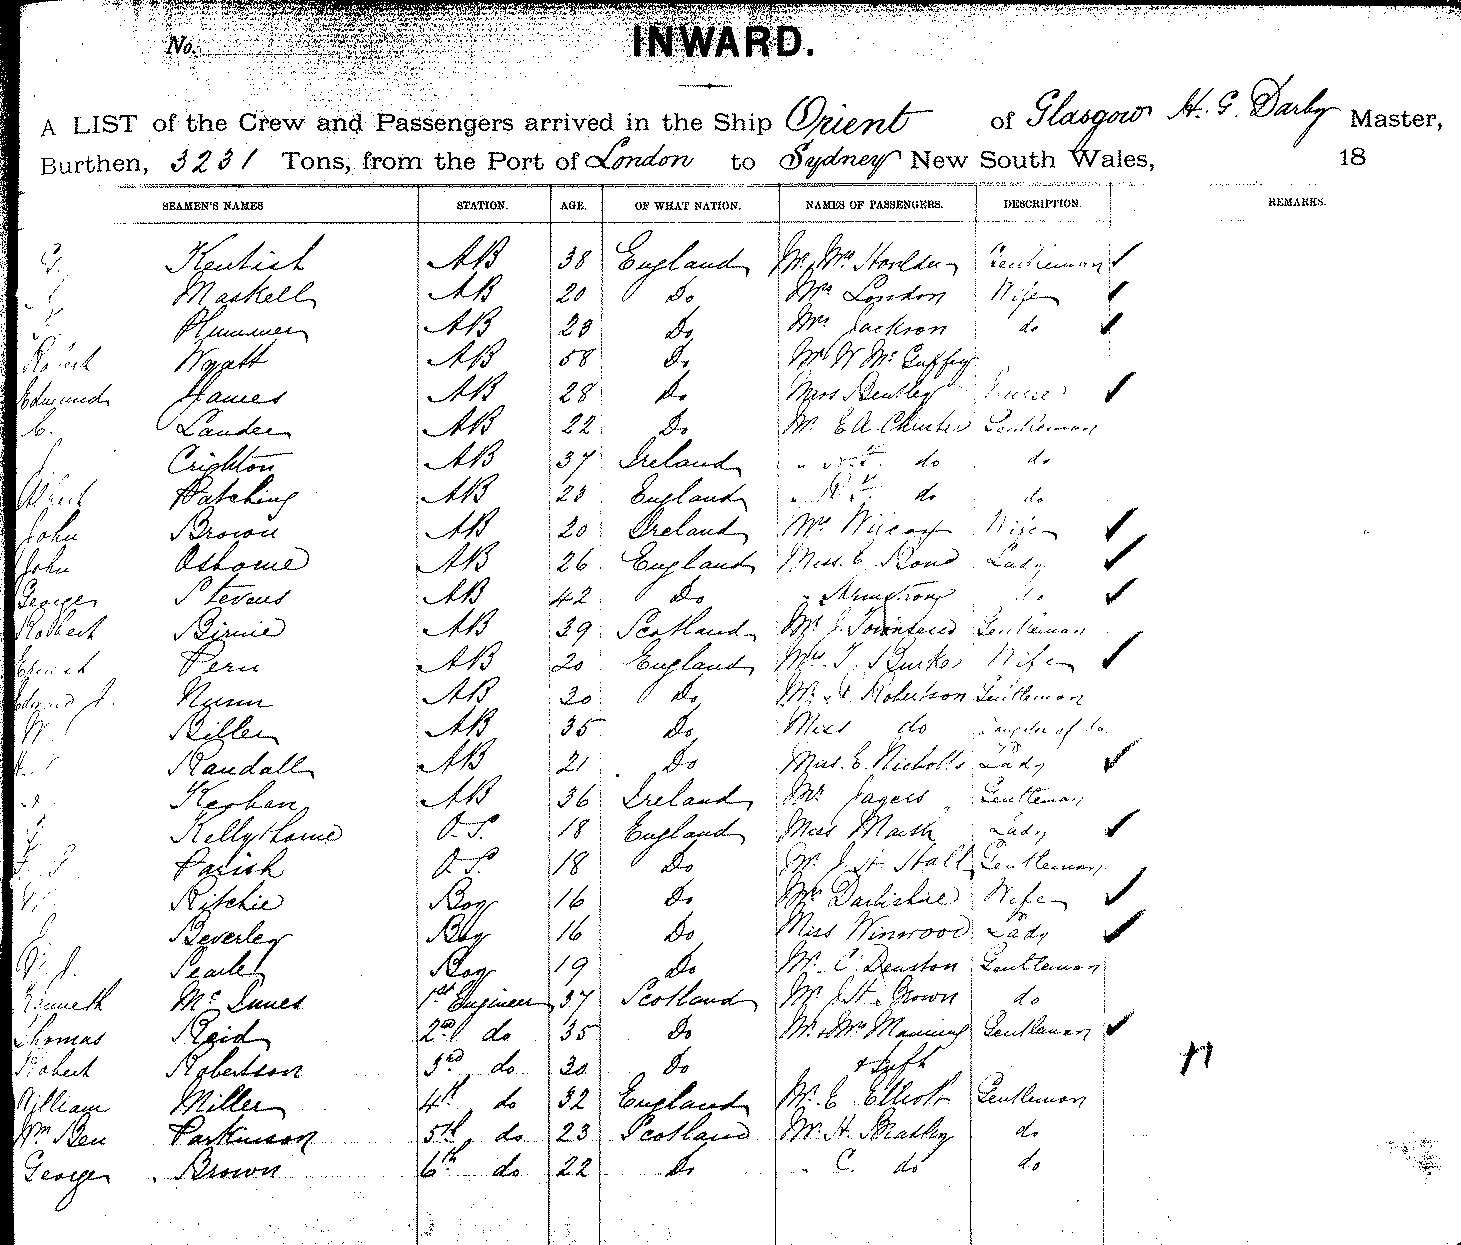 No.
INWARD.
A LIST of the Crew and Passengers arrived in the Ship Orient of Glasgow H. G. Darby Master,
Burthen, 3231 Tons, from the Port of London to Sydney New South Wales, 18
SEAMEN'S NAMES STATION. AGE. OF WHAT NATION. NAMES OF PASSENGERS. DESCRIPTION. REMARKS.
G. Kentish AB 38 England Mr & Mrs Gentleman
Maskell AB 20 Do Mrs London Wife
Plummer AB 23 Do Mrs Jackson do
Robert Wyatt AB 58 Do Mr W Mc Guffey
Edmund James AB 28 Do Miss Bentley
C. Lander AB 22 Do Mr E A Gentleman
Crighton AB 37 Ireland do do
Albert Patching AB 23 England do do
John Brown AB 20 Ireland Mrs Wilcox Wife
John Osborne AB 26 England Miss E Bond Lady
George Stevens AB 42 Do " Armstrong do
Robert Birnie AB 39 Scotland Mr J. Townsend Gentleman
Ernest Peru AB 20 England Mrs T. Burke Wife
Edward J. Nunn AB 30 Do Mr A Robertson Gentleman
W. Biller AB 35 Do Miss do daughter of do
Randall AB 21 Do Miss E. Nicholls Lady
Keohan AB 36 Ireland Mr Jagers Gentleman
Kellythorne O.S. 18 England Miss Marsh Lady
Parish O.S. 18 Do Mr J. H Hall Gentleman
W. Ritchie Boy 16 Do Mrs Darlishire Wife
J. Beverley Boy 16 Do Miss Winwood Lady
W. J. Searle Boy 19 Do Mr C. Denston Gentleman
Kenneth Mc Innes 1st Engineer 37 Scotland Mr J. H. Brown do
Thomas Reid 2nd do 35 Do Mr & Mrs Manning Gentleman
Robert Robertson 3rd do 30 Do
William Miller 4th do 32 England Mr E Elliott Gentleman
Wm Ben Parkinson 5th do 23 Scotland Mr H. do
George Brown 6th do 22 Do " C. do do